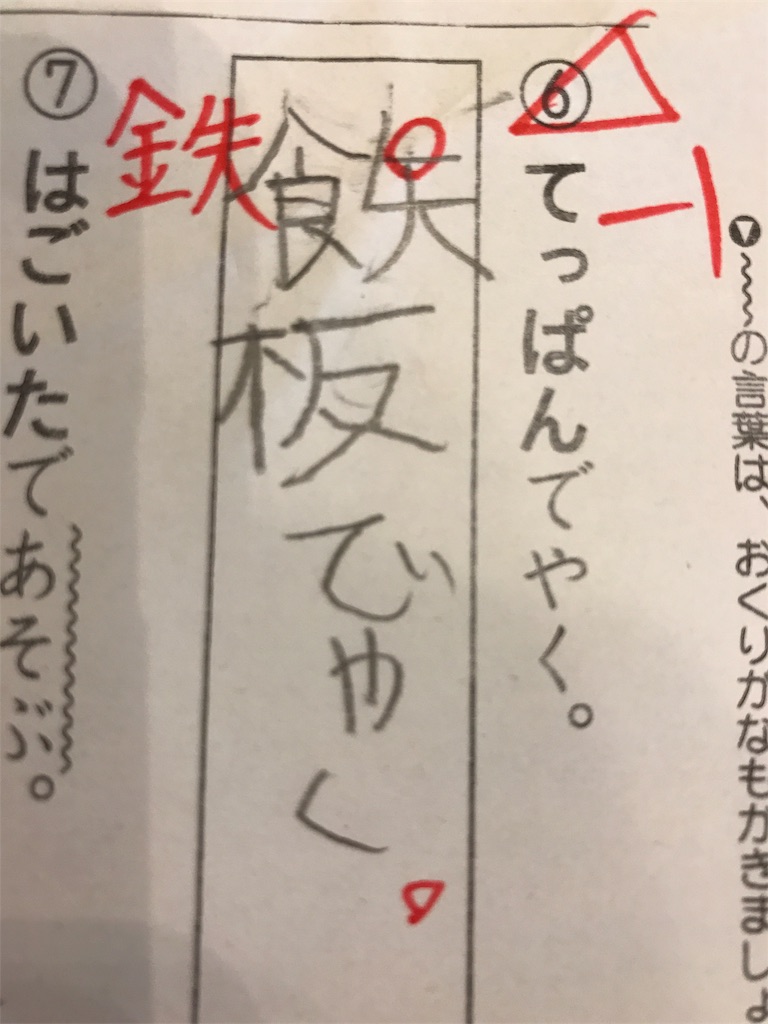 の言葉は、おくりがなもかきましょ
⑥ てっぱんでやく。
板でやく
鉄
⑦ はごいたであそぶ。